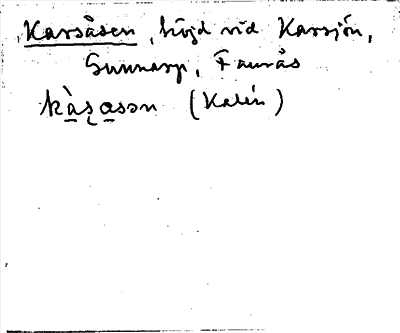 Karsåsen, höjd vid Karsjön,
Gunnarp, Faurås
kàs̨asən (Kalén)